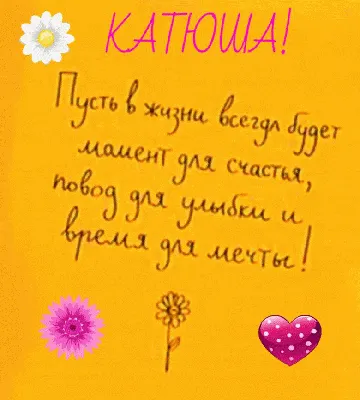 КАТЮША!
Пусть в жизни всегда будет
момент для счастья,
повод для улыбки и
время для мечты!